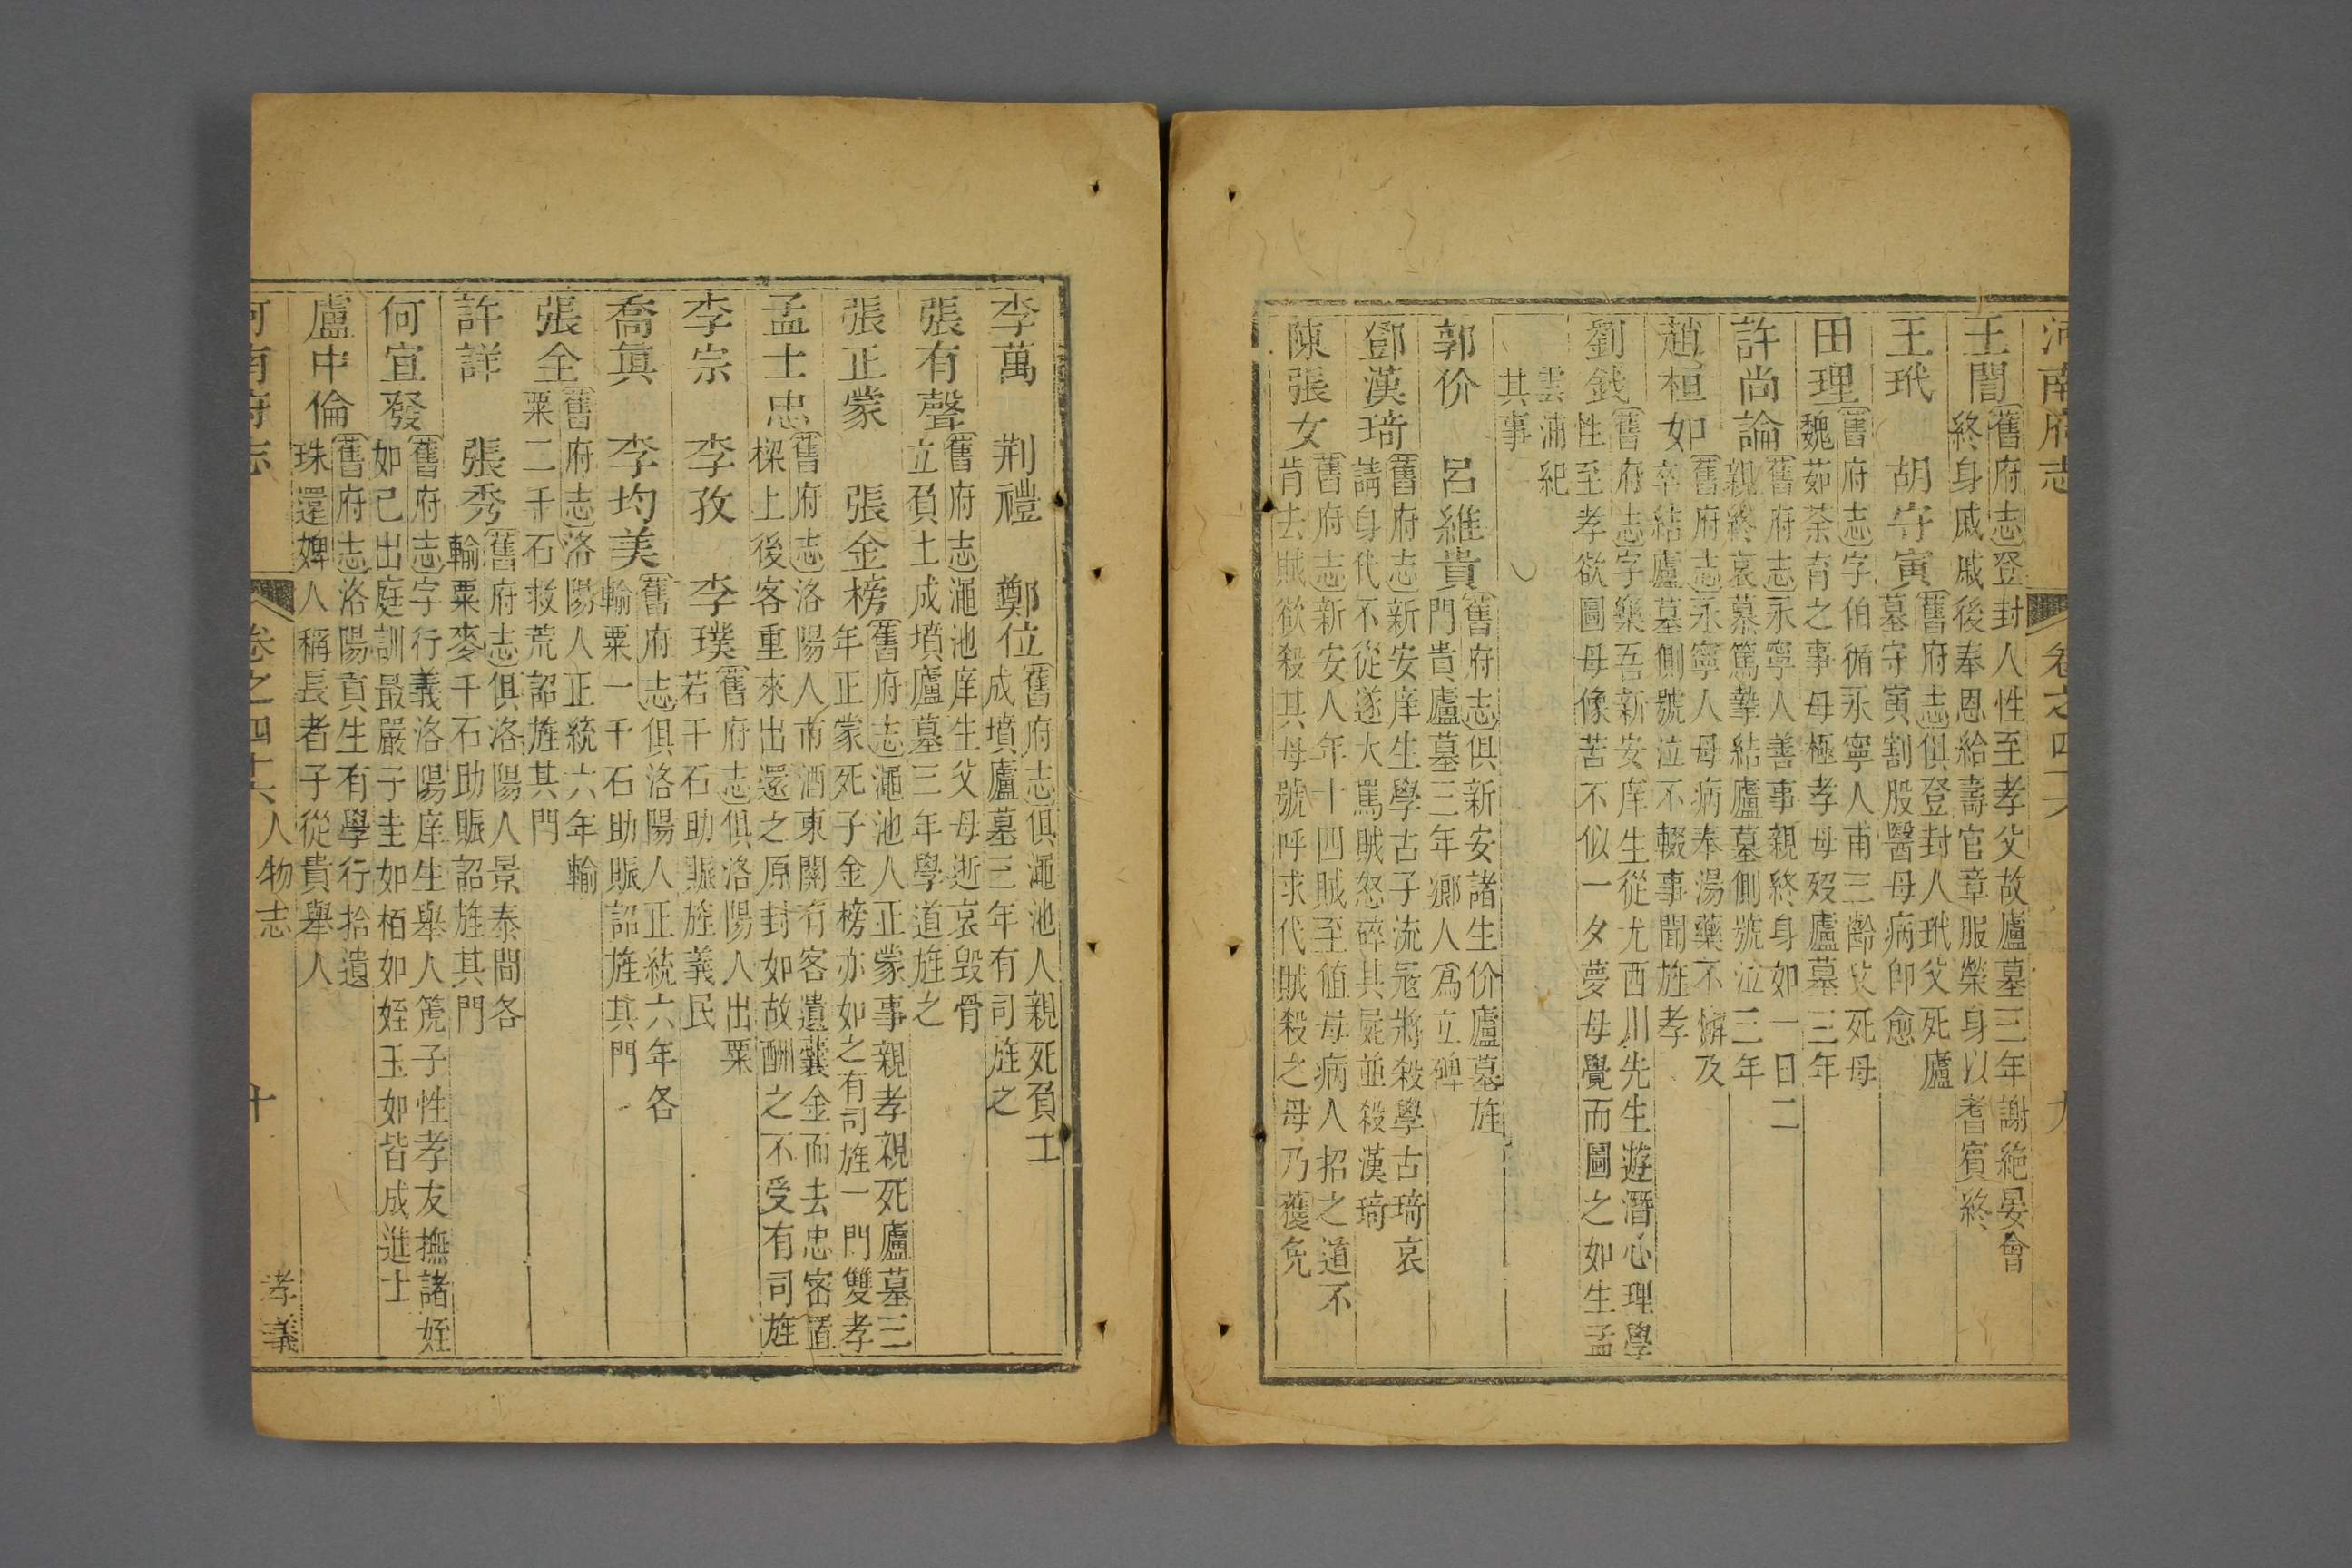 河南府志 卷之四十六 九
王誾 舊府志登封人性至孝父故廬墓三年謝絶晏會
終身戚戚後奉恩給壽官章服榮身以耆賓終
王玳 胡守寅 舊府志俱登封人玳父死廬
墓守寅割股醫母病卽愈
田理 舊府志字伯循永寧人甫三齡父死母
魏茹荼育之事母極孝母歿廬墓三年
許尚論 舊府志永寧人善事親終身如一日二
親終哀慕篤摯結廬墓側號泣三年
趙桓如 舊府志永寧人母病奉湯藥不懈及
卒結廬墓側號泣不輟事聞旌孝
劉錢 舊府志字樂吾新安庠生從尤西川先生遊潛心理學
性至孝欲圖母像苦不似一夕夢母覺而圖之如生孟
雲浦紀
其事
郭价 呂維貴 舊府志俱新安諸生价廬墓旌
門貴廬墓三年鄉人爲立碑
鄧漢琦 舊府志新安庠生學古子流寇將殺學古琦哀
請身代不從遂大罵賊怒碎其屍並殺漢琦
陳張女 舊府志新安人年十四賊至值母病人招之道不
肯去賊欲殺其母號呼求代賊殺之母乃獲免
李萬 荆禮 鄭位 舊府志俱澠池人親死負土
成墳廬墓三年有司旌之
張有聲 舊府志澠池庠生父母逝哀毁骨
立負土成墳廬墓三年學道旌之
張正蒙 張金榜 舊府志澠池人正蒙事親孝親死廬墓三
年正蒙死子金榜亦如之有司旌一門雙孝
孟士忠 舊府志洛陽人市酒東關有客遺囊金而去忠密置
樑上後客重來出還之原封如故酬之不受有司旌
李宗 李孜 李璞 舊府志俱洛陽人出粟
若干石助賑旌義民
喬眞 李均美 舊府志俱洛陽人正統六年各
輸粟一千石助賑詔旌其門
張全 舊府志洛陽人正統六年輸
粟二千石救荒詔旌其門
許詳 張秀 舊府志俱洛陽人景泰間各
輸粟麥千石助賑詔旌其門
何宜發 舊府志字行義洛陽庠生舉人箎子性孝友撫諸姪
如己出庭訓最嚴子圭如栢如姪玉如皆成進士
盧中倫 舊府志洛陽貢生有學行拾遺
珠還婢人稱長者子從貴舉人
河南府志 卷之四十六 人物志 十 孝義